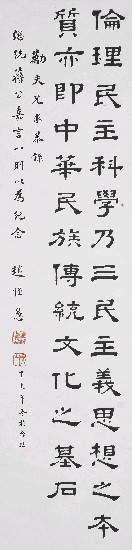 倫理民主科學乃三民主義思想之本
質亦即中華民族傳統文化之基石
勁夫兄來恭錄
總統蔣公嘉言一則以為紀念
趙恆惪